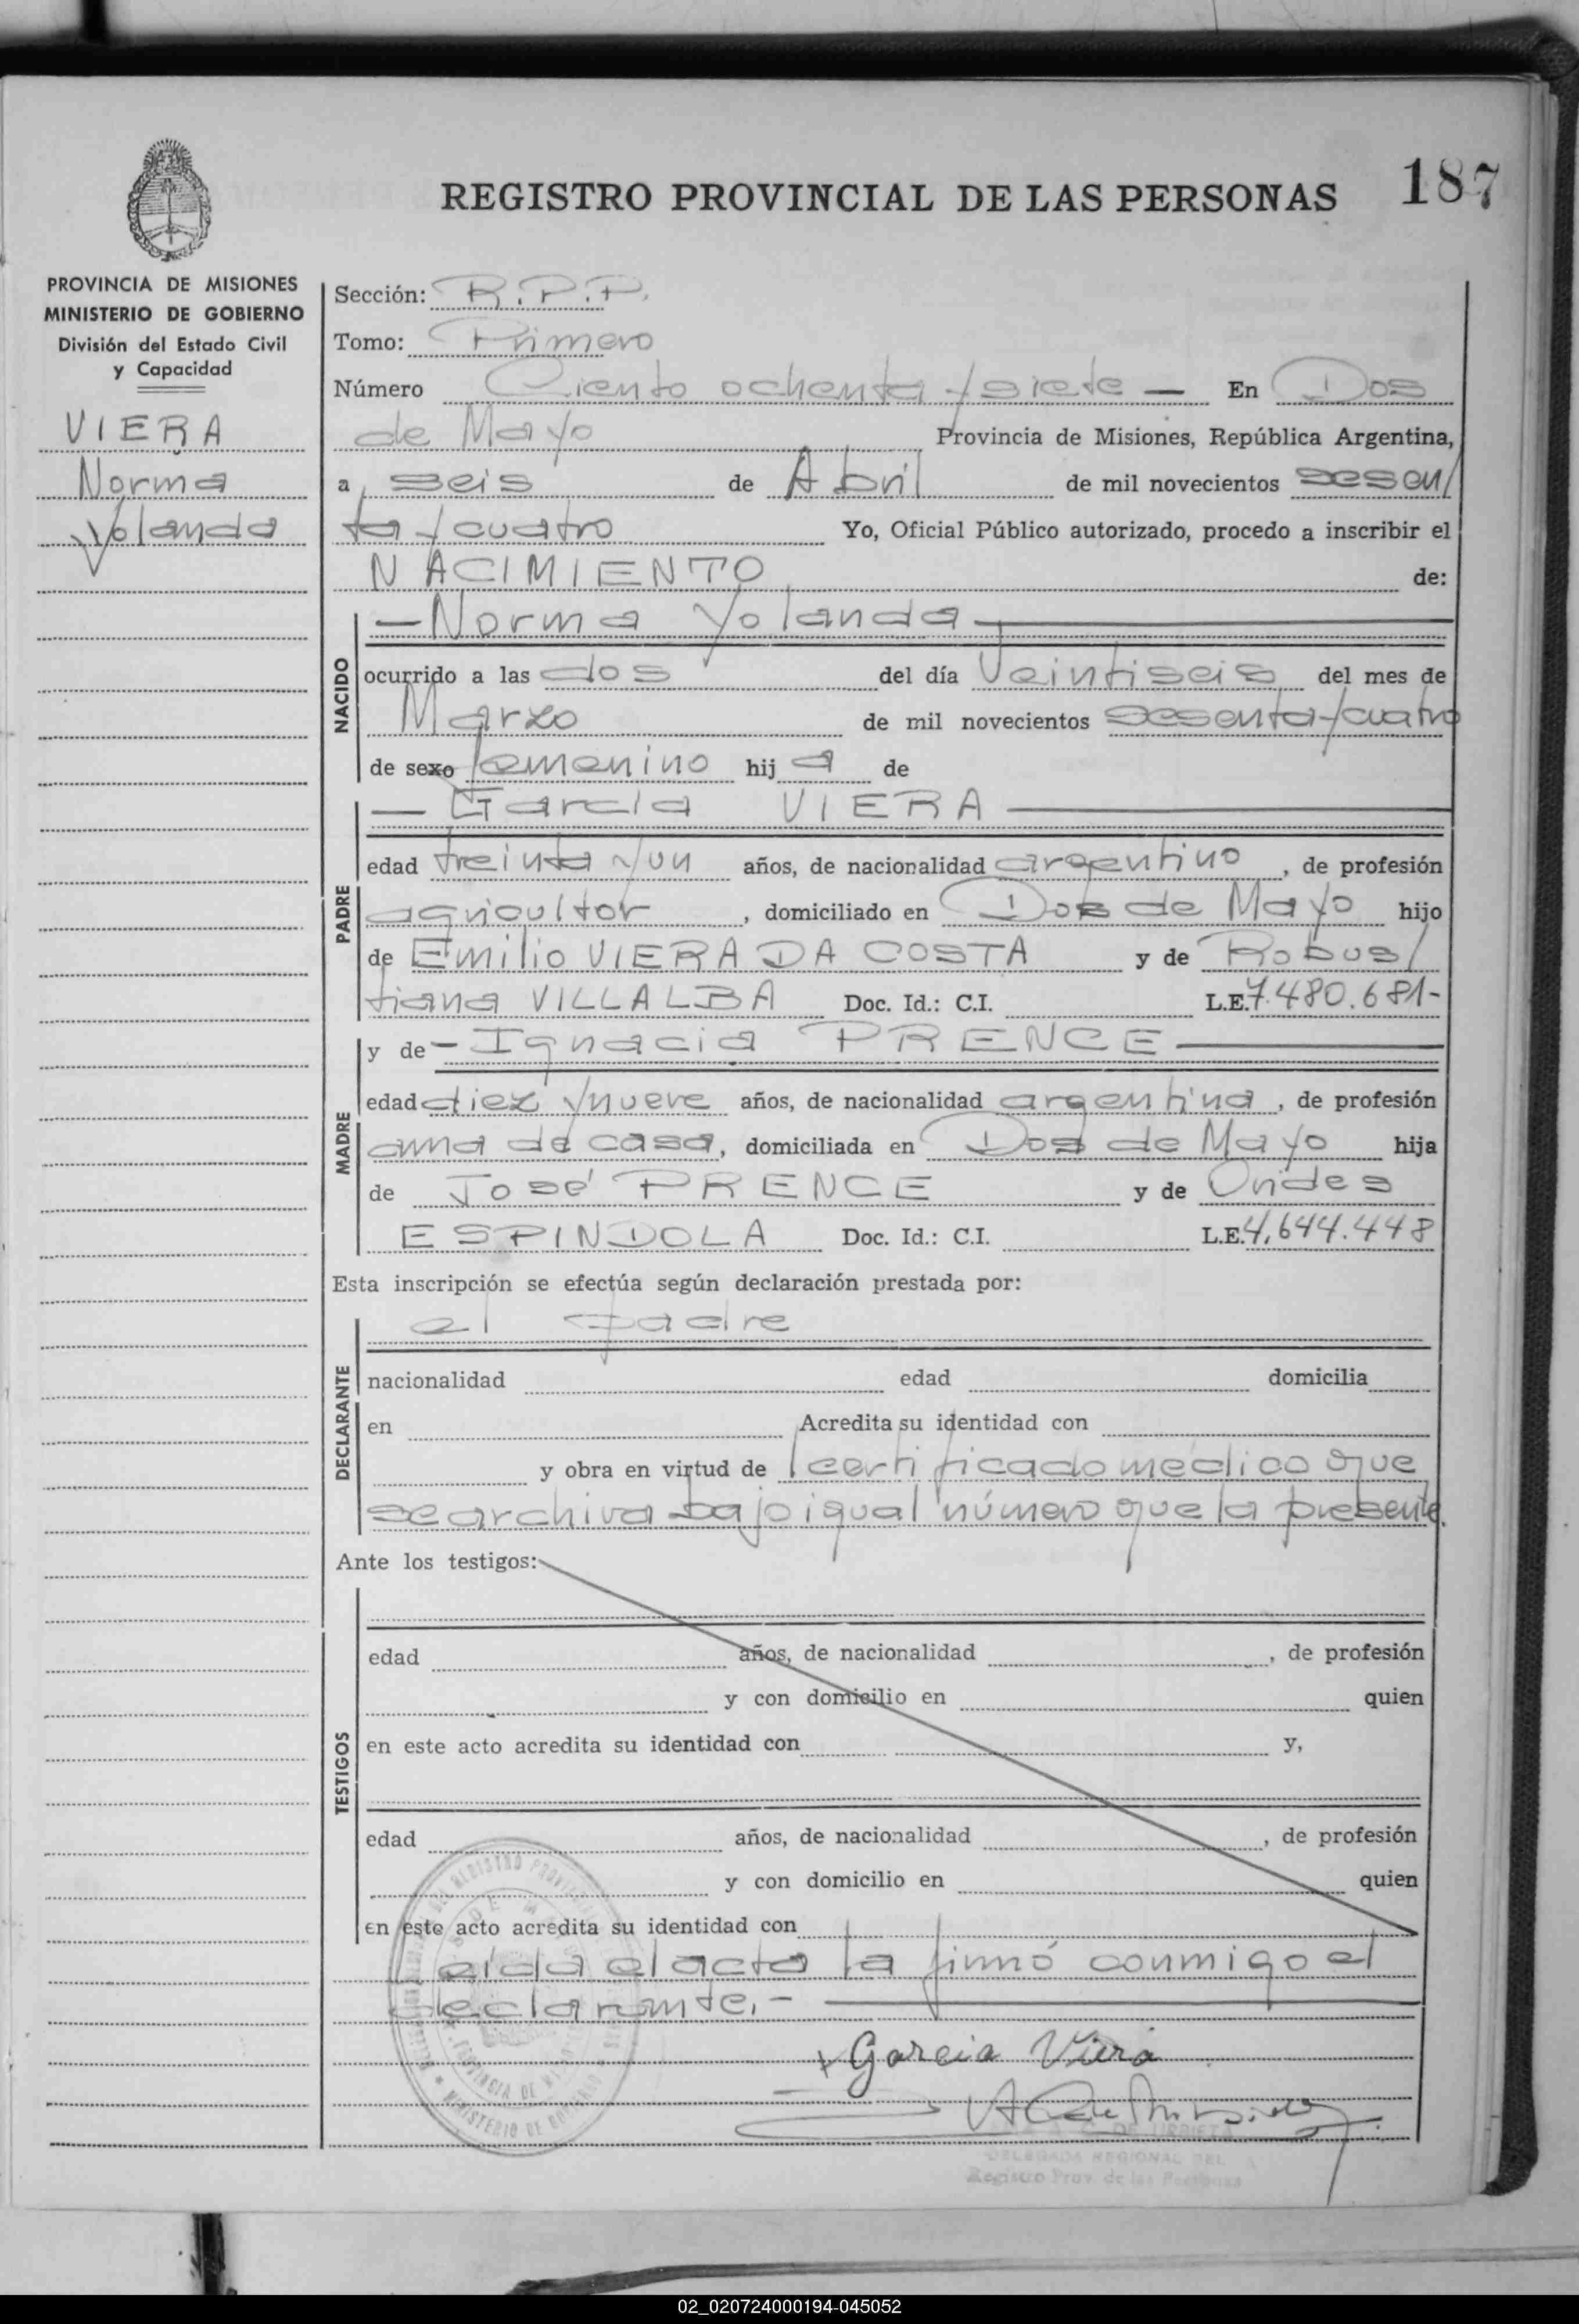 187
REGISTRO PROVINCIAL DE LAS PERSONAS
PROVINCIA DE MISIONES
MINISTERIO DE GOBIERNO
División del Estado Civil
y Capacidad
VIERA
Norma
Yolanda
Sección: R.P.P.
Tomo: Primero
Número Ciento ochenta y siete — En Dos
de Mayo Provincia de Misiones, República Argentina,
a seis de Abril de mil novecientos sesen/
ta y cuatro Yo, Oficial Público autorizado, procedo a inscribir el
NACIMIENTO de:
NACIDO
— Norma Yolanda —
ocurrido a las dos del día Veintiseis del mes de
Marzo de mil novecientos sesenta y cuatro
de sexo femenino hij a de
PADRE
— García VIERA —
edad treinta y un años, de nacionalidad argentino, de profesión
agricultor, domiciliado en Dos de Mayo hijo
de Emilio VIERA DA COSTA y de Robus/
tiana VILLALBA Doc. Id.: C.I. L.E. 7.480.681-
MADRE
y de — Ignacia PRENCE —
edad diez y nueve años, de nacionalidad argentina, de profesión
ama de casa, domiciliada en Dos de Mayo hija
de José PRENCE y de Orides
ESPINDOLA Doc. Id.: C.I. L.E. 4,644.448
Esta inscripción se efectúa según declaración prestada por:
DECLARANTE
el padre
nacionalidad edad domicilia
en Acredita su identidad con
y obra en virtud de certificado médico que
se archiva bajo igual número que la presente.
Ante los testigos:
TESTIGOS
edad años, de nacionalidad , de profesión
y con domicilio en quien
en este acto acredita su identidad con y,
edad años, de nacionalidad , de profesión
y con domicilio en quien
en este acto acredita su identidad con
Leída el acta la firmó conmigo el
declarante.- —
x Garcia Viera
DELEGADA REGIONAL DEL
Registro Prov. de las Personas
02_020724000194-045052